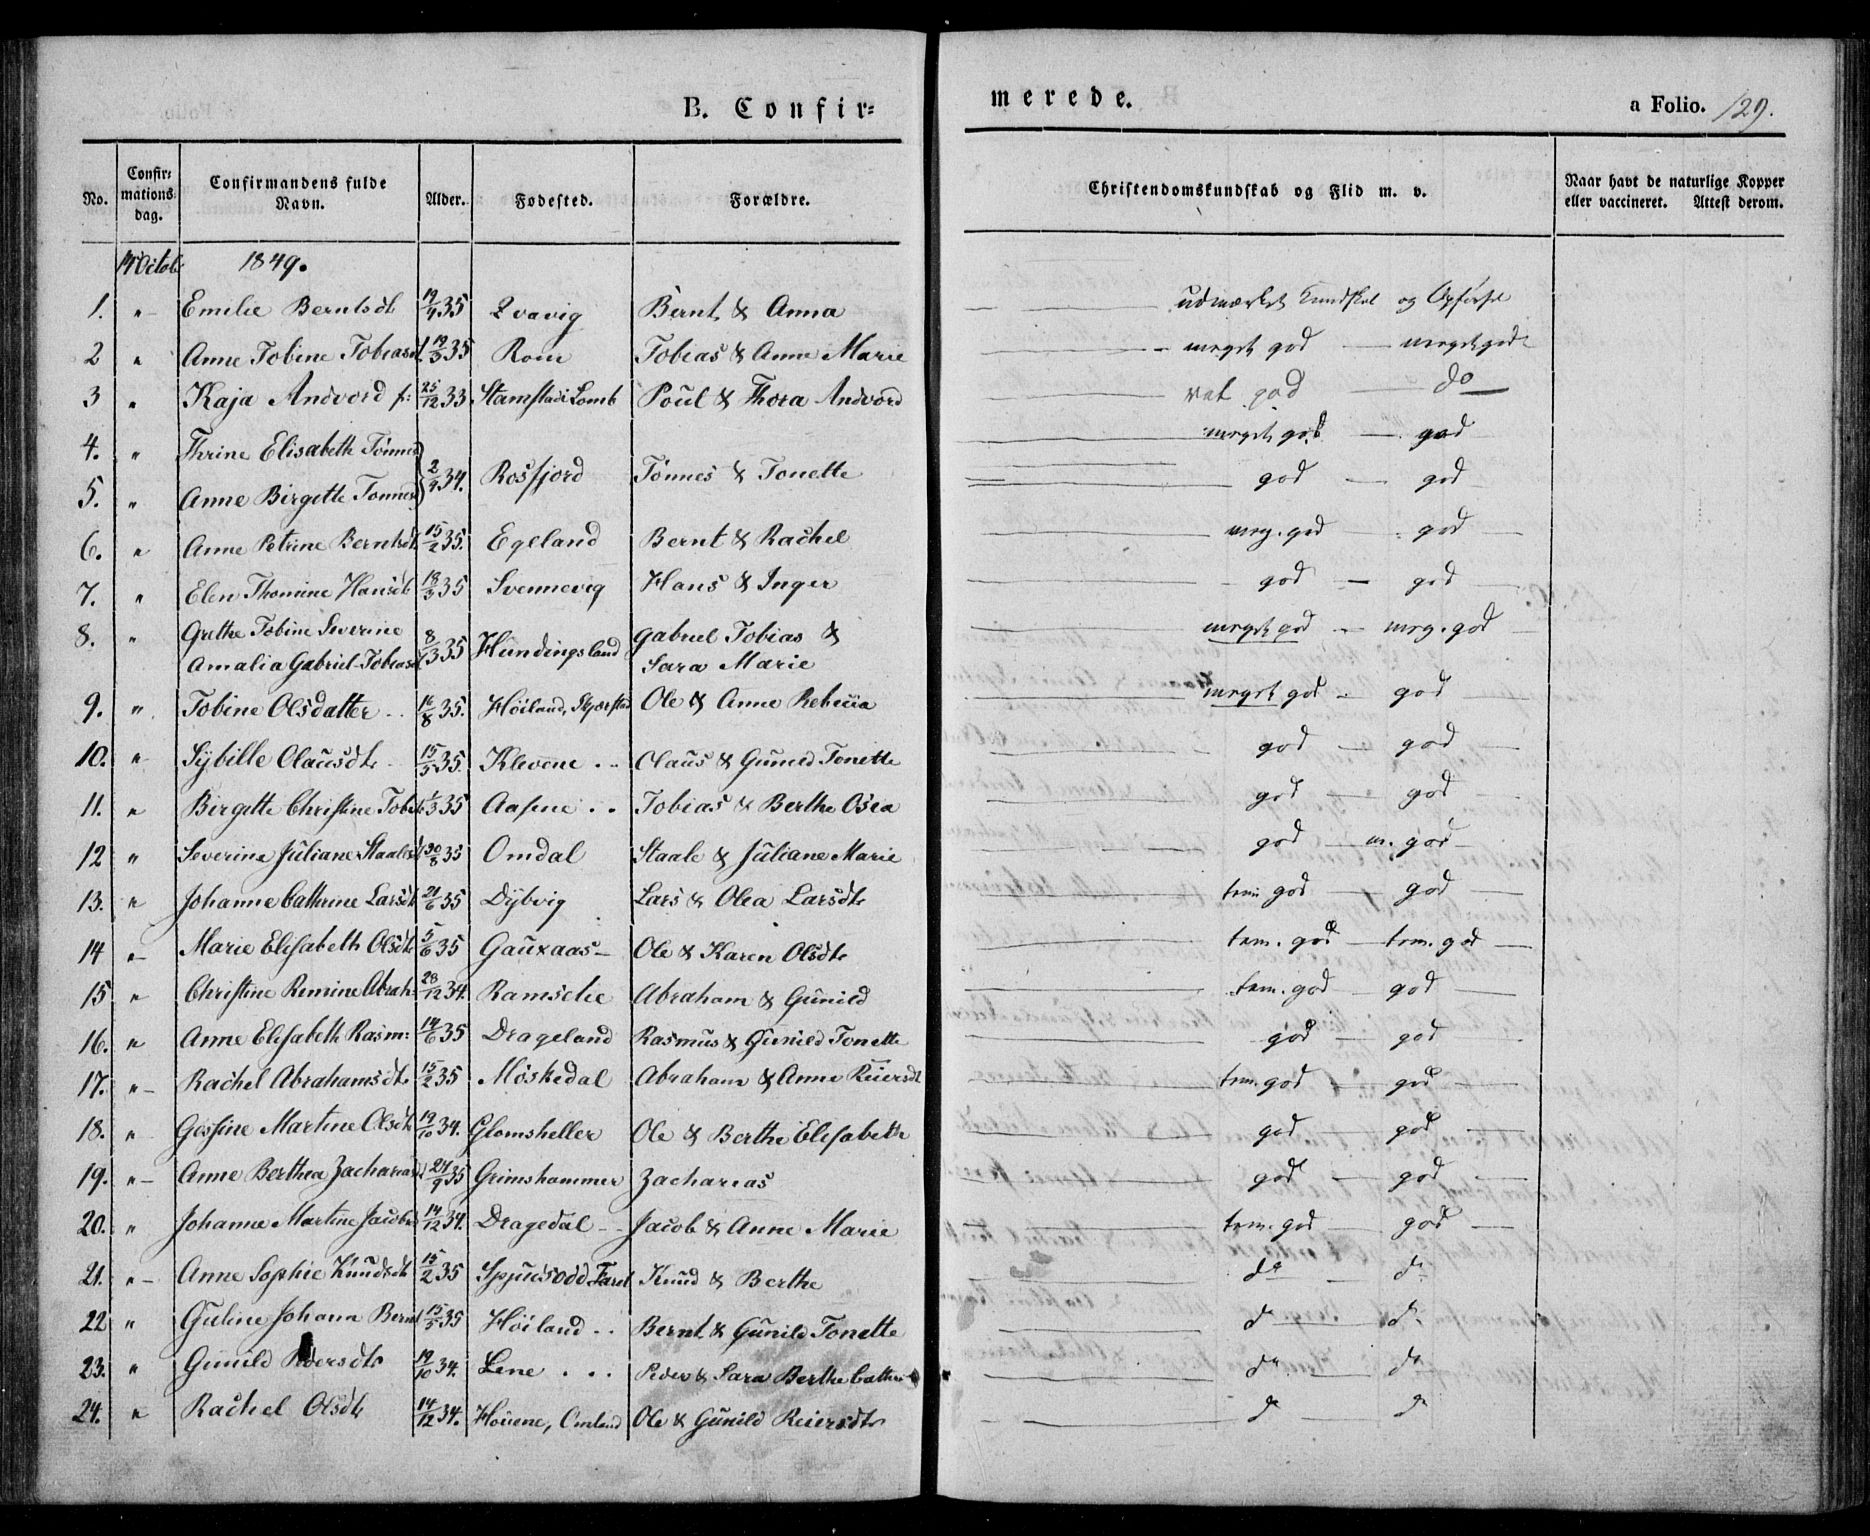 B. Confir= merede. a Folio. 129.
No. Confir=mations dag. Confirmandens fulde Navn. Alder. Fødested. Forældre. Christendomskundskab og Flid m. v. Naar havt de naturlige Kopper eller vaccineret. Attest derom.
14 Octob. 1849.
1. " Emilie Berntsdt 19/4 35 Qvavig Bernt & Anna udmærket Kundskab og Opførsel
2 " Anne Tobine Tobiasd 19/3 35 Rom Tobias & Anne Marie meget god — meget god
3 " Kaja Andvord f: 25/12 33 Stamstad i Lomb Poul & Thora Andvord ret god — do
4. " Thrine Elisabeth Tønnes meget god — god
5. " Anne Birgette Tønnes 2/9 34. Rosfjord Tønnes & Tonette god — god
6. " Anne Petrine Berntsdt 15/2 35. Egeland Bernt & Rachel meg. god god
7. " Elen Thomine Hansdt 18/3 35 Svennevig Hans & Inger god — god
8. " Grethe Tobine Severine Amalia Gabriel-Tobiasd 8/3 35 Hundingsland Gabriel Tobias & Sara Marie meget god — meg. god
9. " Tobine Olsdatter 16/8 35. Høiland, Olé & Anne Rebecca meget god — god
10. " Sybille Olausdt 15/5 35. Klevene Olaus & Gunild Tonette god — god
11. " Birgette Christine Tobi 1/3 35 Aasene Tobias & Berthe Osea god — god
12 " Severine Juliane Staalesd 30/8 35 Omdal Staale & Juliane Marie god — m. god
13. " Johanne Cathrine Larsdt 21/6 35 Dybvig Lars & Olea Larsdt tem. god — god
14 " Marie Elisabeth Olsdt 5/6 35 Gauxaas Ole & Karen Olsdt tem. god — tem. god
15 " Christine Remine Abrah 28/12 34. Ramslie Abraham & Gunild tem. god god
16. " Anne Elisabeth Rasm: 14/6 35 Drageland Rasmus & Gunild Tonette god — god
17. " Rachel Abrahamsdt 15/2 35 Møskedal Abraham & Anne Reiersdt tem. god — god
18. " Gessine Martine Olsdt 19/10 34. Glomsheller Ole & Berthe Elisabeth god — god
19. " Anne Berthea Zacharias 27/9 35 Grimshammer Zacharias god — god
20. " Johanne Martine Jacobs 14/12 34. Dragedal Jacob & Anne Marie tem. god — god
21. " Anne Sophie Knudsdt 15/2 35 Spjudsodd, Farst Knud & Berthe do — do
22 " Guline Johanne Bernt 15/5 35 Høiland Bernt & Gunild Tonette do — do
23. " Gunild Pedersdt 19/10 34. Lene Peder & Sara Berthe Cathr do — do
24. " Rachel Olsdt 14/12 34. Houene, Omland Ole & Gunild Reiersdt do — do